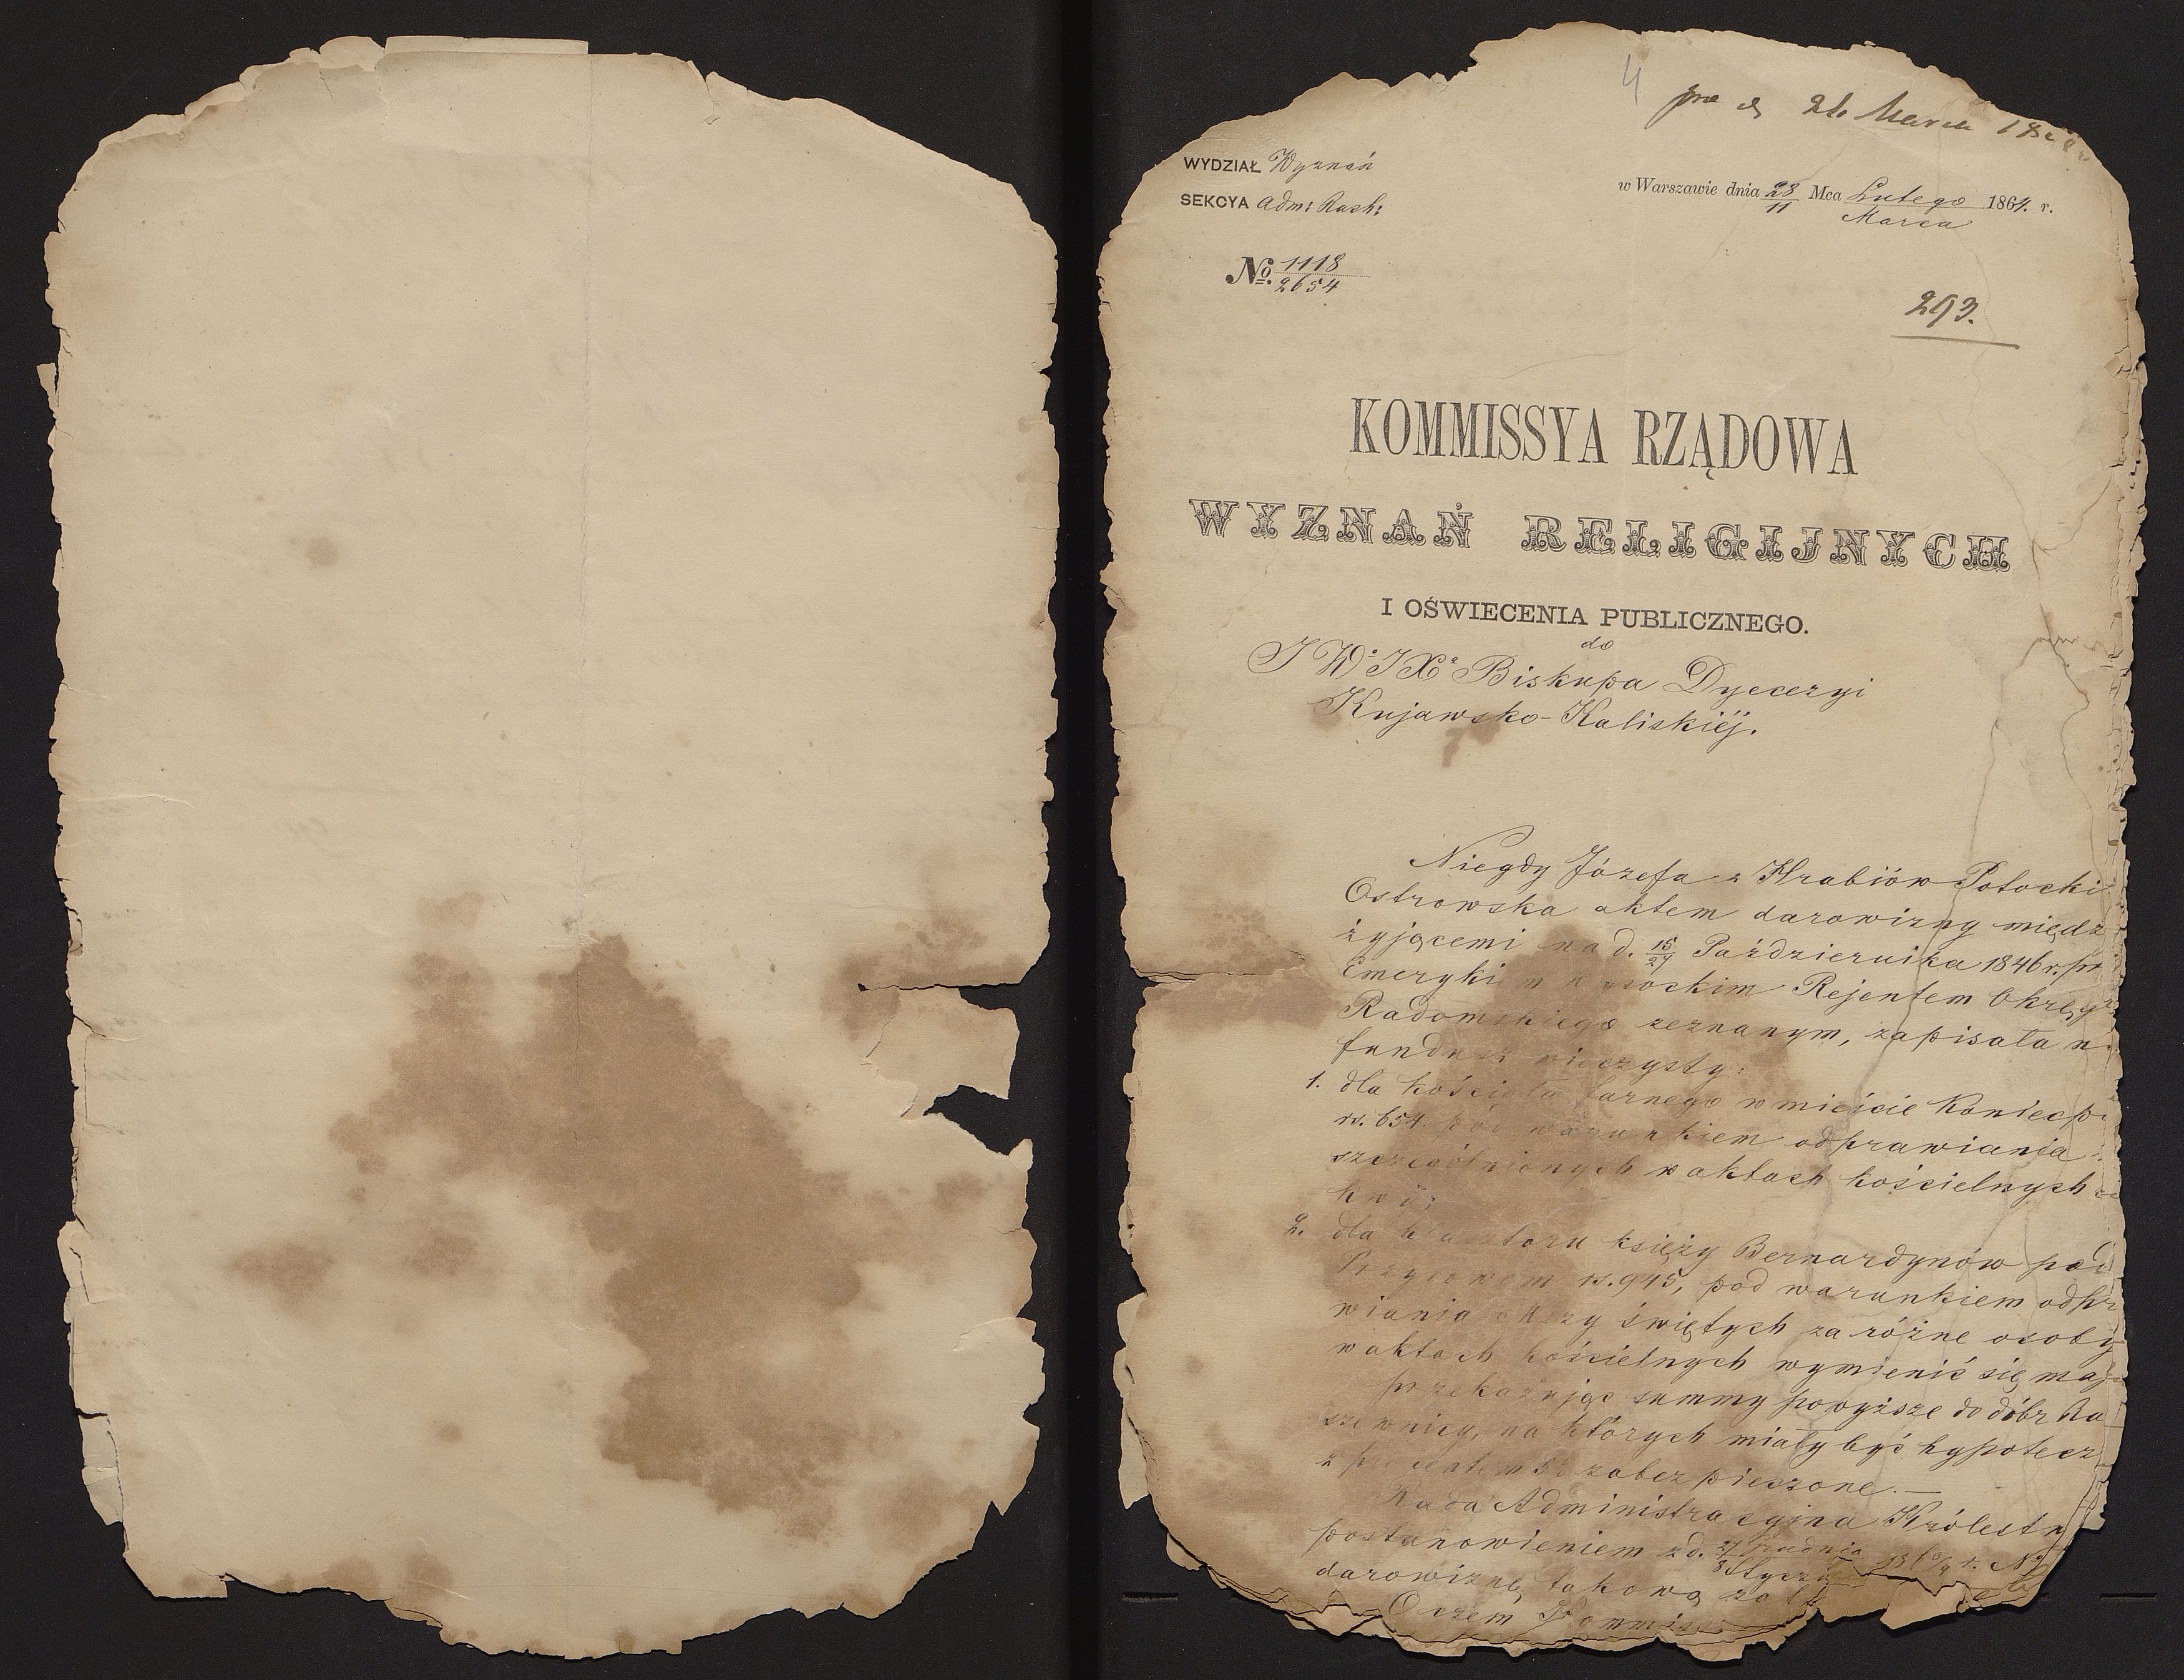 4
21 Marca 18
WYDZIAŁ Wyznań
SEKCYA Adm: Rach:
w Warszawie dnia 28/11 Mca Lutego/Marca 1864. r.
No. 1118/2654
293.
KOMMISSYA RZĄDOWA
WYZNAŃ RELIGIJNYCH
I OŚWIECENIA PUBLICZNEGO.
do
J W: J X: Biskupa Dyecezyi
Kujawsko-Kaliskiéj.
Niegdy Józefa z Hrabiów Potocki
Ostrowska aktem darowizny międz
żyjącemi na d. 15/27 Października 1846 r. pr
Emerykiem Rejentem Okręg
Radomskiego zeznanym, zapisała n
fundusz wieczysty:
1. dla kościoła farnego w mieście Koniecp
rs. 654. pod warunkiem odprawiania
szczególnionych w aktach kościelnych
2. dla klasztoru księży Bernardynów pod
Przyrowem rs. 945, pod warunkiem odpr
wiania Mszy świętych za różne osoby
w aktach kościelnych wymienić się maj
przekazując summy powyższe do dóbr Ru
szewnicy, na których miały być hypotecz
z procentem 5% zabezpieczone.—
Rada Administracyjna Królestw
postanowieniem z d. Grudnia/Stycz N
darowiznę takową
O czem Kommis